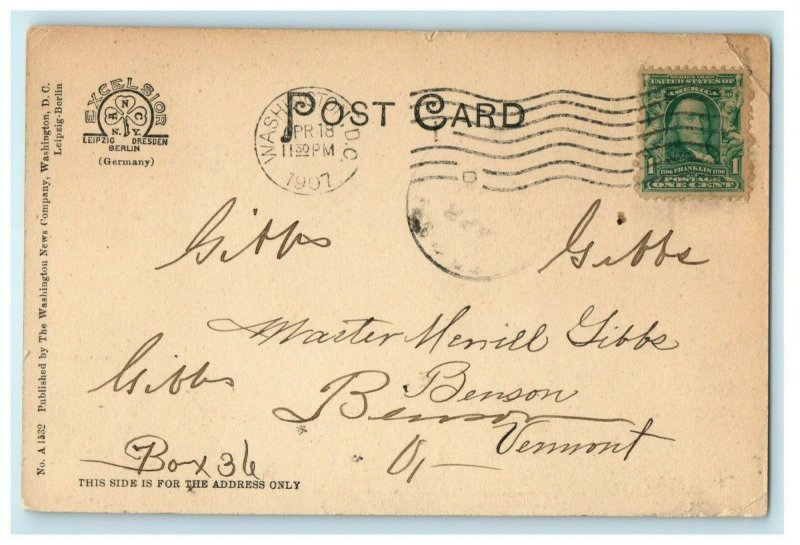 No. A 1532 Published by The Washington News Company, Washington, D. C.
Leipzig-Berlin
EXCELSIOR
A N C
N. Y.
LEIPZIG DRESDEN
BERLIN
(Germany)
POST CARD
WASHINGTON, D.C.
APR 18
11 30 PM
1907
SERIES 1902
UNITED STATES OF
AMERICA
1 FRANKLIN 1
POSTAGE
ONE CENT
APR
Gibbs
Gibbs
Master Merrill Gibbs
Gibbs
Benson
Benson
Vermont
Vt
Box 36
THIS SIDE IS FOR THE ADDRESS ONLY